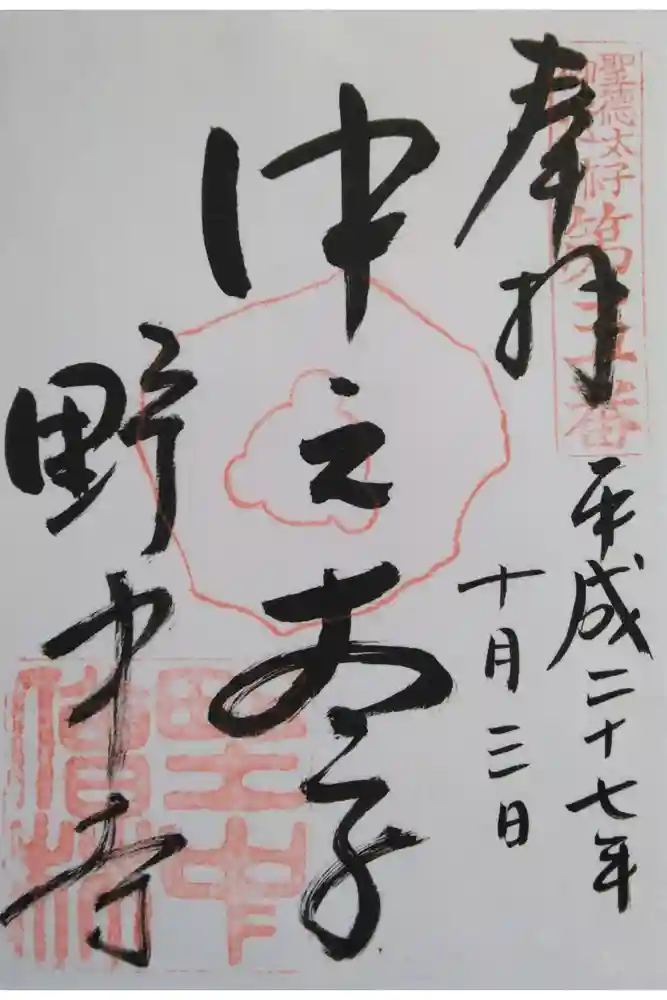 聖徳太子
第五番
奉拝
平成二十七年
十月三日
中之太子
野中寺
野中